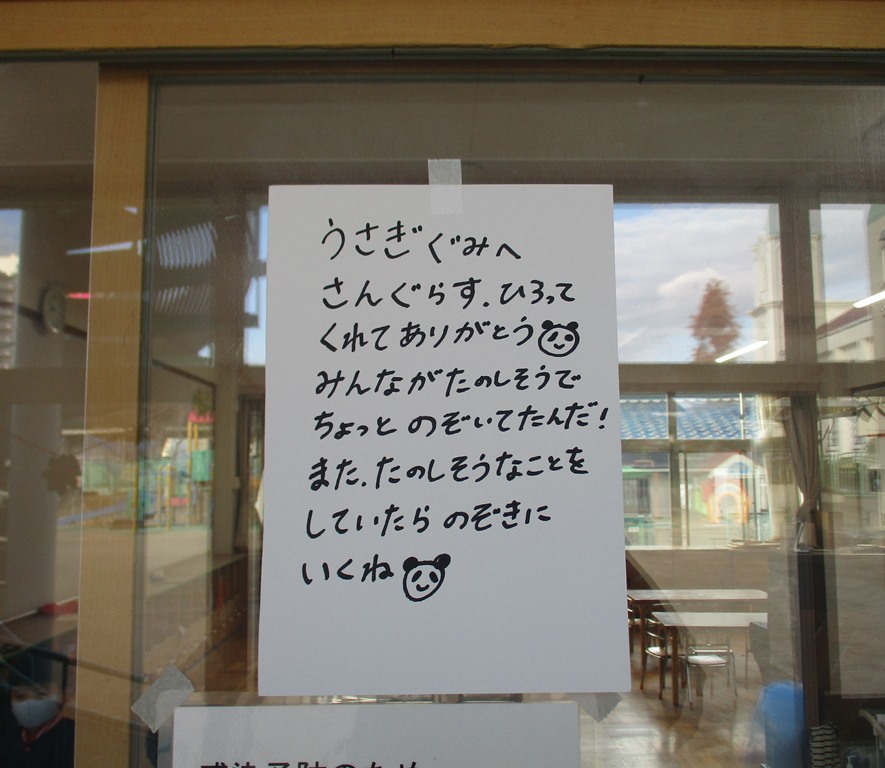 うさぎぐみへ
さんぐらす、ひろって
くれてありがとう
みんながたのしそうで
ちょっとのぞいてたんだ!
また、たのしそうなことを
していたらのぞきに
いくね